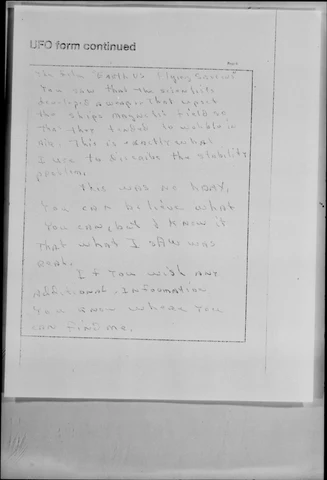 UFO form continued
The film "Earth VS Flying Saucers"
You saw that the scientists
developed a weapon that
the ships magnetic field so
that they to wobble in
air. This is exactly what
I use to describe the stability
problem.
This was no hoax,
You can believe what
You can, but I know it
that what I saw was
real.
If you wish any
additional information
You know where you
can find me.